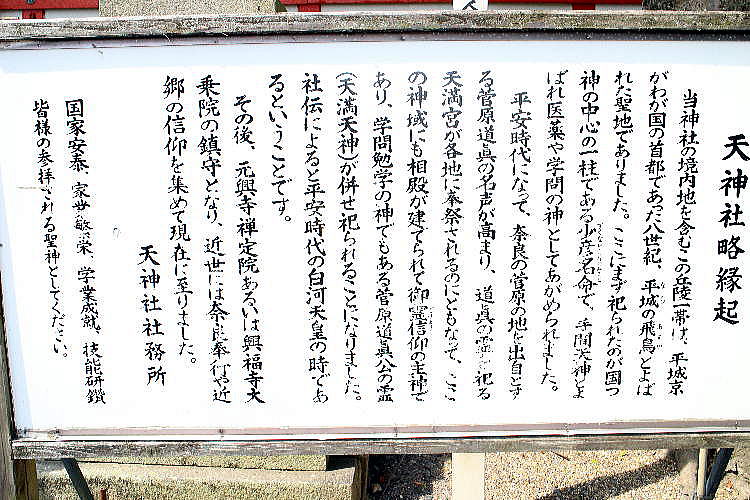 天神社略縁起
当神社の境内地を含むこの丘陵一帯は、平城京
がわが国の首都であった八世紀、平城の飛鳥とよば
れた聖地でありました。ここにまず祀られたのが国つ
神の中心の一柱である少彦名命で、手間天神とよ
ばれ医薬や学問の神としてあがめられました。
平安時代になって、奈良の菅原の地を出自とす
る菅原道真の名声が高まり、道真の霊を祀る
天満宮が各地に奉祭されるのにともなって、ここ
の神域にも相殿が建てられて御霊信仰の主神で
あり、学問勉学の神でもある菅原道真公の霊
(天満天神)が併せ祀られることになりました。
社伝によると平安時代の白河天皇の時であ
るということです。
その後、元興寺禅定院あるいは興福寺大
乗院の鎮守となり、近世には奈良奉行や近
郷の信仰を集めて現在に至りました。
天神社社務所
国家安泰、家世繁栄、学業成就、技能研鑽
皆様の参拝される聖神としてください。